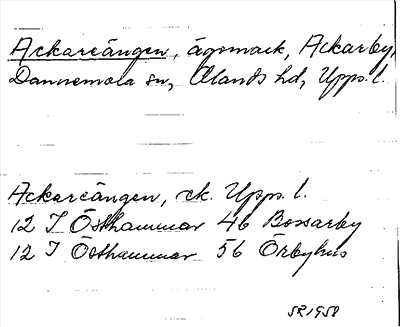 Ackareängen, ägomark, Ackarby,
Dannemora sn, Olands hd, Upps. l.
Ackareängen, ek. Upps. l.
12 I Östhammar 4b Bossarby
12 I Östhammar 5b Örbyhus
SR 1958